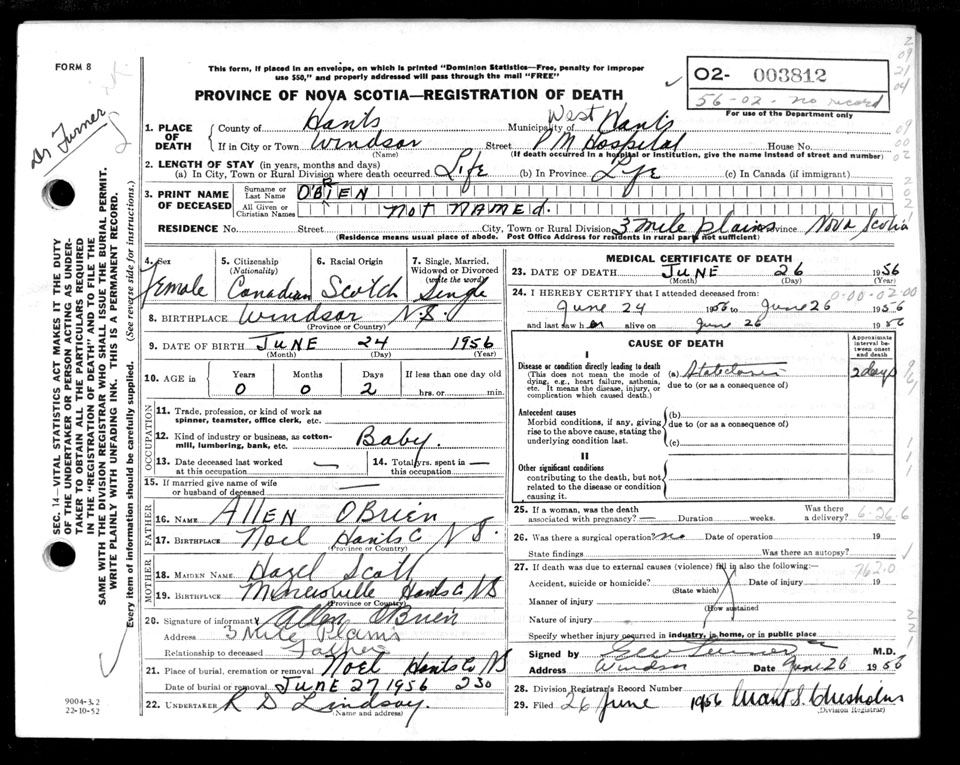 FORM 8
This form, if placed in an envelope, on which is printed "Dominion Statistics—Free, penalty for improper
use $50," and properly addressed will pass through the mail "FREE"
PROVINCE OF NOVA SCOTIA—REGISTRATION OF DEATH
02- 003812
56-02- no record
For use of the Department only
Dr Turner
SEC. 14—VITAL STATISTICS ACT MAKES IT THE DUTY
OF THE UNDERTAKER OR PERSON ACTING AS UNDER-
TAKER TO OBTAIN ALL THE PARTICULARS REQUIRED
IN THE "REGISTRATION OF DEATH" AND TO FILE THE
SAME WITH THE DIVISION REGISTRAR WHO SHALL ISSUE THE BURIAL PERMIT.
WRITE PLAINLY WITH UNFADING INK. THIS IS A PERMANENT RECORD.
Every item of information should be carefully supplied. (See reverse side for instructions.)
1. PLACE OF DEATH
County of Hants Municipality of West Hants
If in City or Town Windsor Street P M Hospital House No.
(Name) (If death occurred in a hospital or institution, give the name instead of street and number)
2. LENGTH OF STAY (in years, months and days)
(a) In City, Town or Rural Division where death occurred. Life (b) In Province Life (c) In Canada (if immigrant)
3. PRINT NAME OF DECEASED
Surname or Last Name O'BRIEN
All Given or Christian Names NOT NAMED.
RESIDENCE No. Street City, Town or Rural Division 3 mile plains Province Nova Scotia
(Residence means usual place of abode. Post Office Address for residents in rural parts not sufficient)
4. Sex Female
5. Citizenship (Nationality) Canadian
6. Racial Origin Scotch
7. Single, Married, Widowed or Divorced (write the word) Single
8. BIRTHPLACE Windsor N.S.
(Province or Country)
9. DATE OF BIRTH JUNE 24 1956
(Month) (Day) (Year)
10. AGE in Years 0 Months 0 Days 2 If less than one day old hrs. or min.
OCCUPATION
11. Trade, profession, or kind of work as
spinner, teamster, office clerk, etc.
12. Kind of industry or business, as cotton-
mill, lumbering, bank, etc. Baby.
13. Date deceased last worked at this occupation —
14. Total yrs. spent in this occupation —
15. If married give name of wife
or husband of deceased —
FATHER
16. NAME Allen OBrien
17. BIRTHPLACE Noel Hants C N S.
(Province or Country)
MOTHER
18. MAIDEN NAME Hazel Scott
19. BIRTHPLACE Hants Co NS
(Province or Country)
20. Signature of informant X Allen OBrien
Address 3 Mile Plains
Relationship to deceased Father
21. Place of burial, cremation or removal Noel Hants Co NS
Date of burial or removal JUNE 27 1956 2 30
22. UNDERTAKER R D Lindsay.
(Name and address)
9004-3.2
22-10-52
MEDICAL CERTIFICATE OF DEATH
23. DATE OF DEATH JUNE 26 1956
(Month) (Day) (Year)
24. I HEREBY CERTIFY that I attended deceased from: 0-00-02.00
June 24 1956 to June 26 1956
and last saw her alive on June 26 1956
CAUSE OF DEATH
Approximate interval between onset and death
I
Disease or condition directly leading to death
(This does not mean the mode of
dying, e.g., heart failure, asthenia,
etc. It means the disease, injury, or
complication which caused death.)
(a) 2 days
due to (or as a consequence of)
Antecedent causes
Morbid conditions, if any, giving
rise to the above cause, stating the
underlying condition last.
(b)
due to (or as a consequence of)
(c)
II
Other significant conditions
contributing to the death, but not
related to the disease or condition
causing it.
25. If a woman, was the death
associated with pregnancy? — Duration weeks. Was there a delivery? 6-26.6
26. Was there a surgical operation? no Date of operation 19
State findings Was there an autopsy?
27. If death was due to external causes (violence) fill in also the following: 762.0
Accident, suicide or homicide? Date of injury 19
(State which)
Manner of injury
(How sustained)
Nature of injury
Specify whether injury occurred in industry, in home, or in public place
Signed by Turner M.D.
Address Windsor Date June 26 1956
28. Division Registrar's Record Number
29. Filed 26 June 1956 Grant S. Chisholm
(Division Registrar)